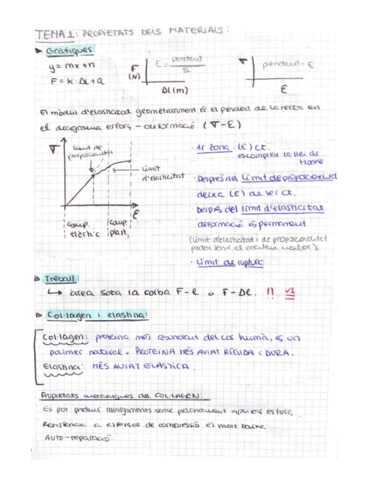 TEMA 1: PROPIETATS DELS MATERIALS:
Gràfiques
y = mx + n
F = K · Δl + a
F (N)
E = pendent / S
Δl (m)
σ
pendent = E
ε
El mòdul d'elasticitat geomètricament és el pendent de la recta en
el diagrama esforç - deformació (σ - ε)
σ
límit de proporcionalitat
Límit d'elasticitat
ε
comp. elàstic
comp. plàst.
· 1r zona: (E) ct.
es compleix la llei de Hooke
· Després del límit de proporcionalitat
deixa (E) de ser ct.
· Després del límit d'elasticitat
deformació és permanent
(límit d'elasticitat i de proporcionalitat
poden tenir el mateix valor).
· Límit de ruptura
Treball:
↳ àrea sota la corba F - ε o F - Δl. !! V1
Col·lagen i elastina:
Col·lagen: proteïna més abundant del cos humà, és un
polímer natural. PROTEÏNA MÉS AVIAT RÍGIDA i DURA.
Elastina: MÉS AVIAT ELÀSTICA.
Propietats mecàniques del COL·LAGEN:
Es pot produir allargaments sense pràcticament aplicar esforç.
Resistència a esforços de compressió és molt baixa.
AUTO-reparació.